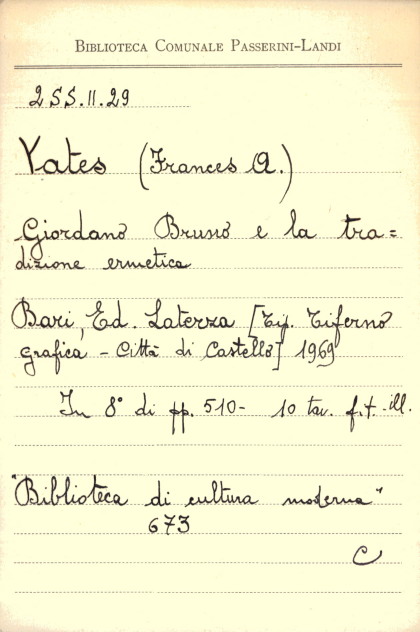 BIBLIOTECA COMUNALE PASSERINI-LANDI
2SS.II.29
Yates (Frances A.)
Giordano Bruno e la tra=
dizione ermetica
Bari, Ed. Laterza [Tip. Tiferno
grafica - Città di Castello] 1969
In 8° di pp. 510- 10 tav. f.t. ill.
"Biblioteca di cultura moderna"
673
C